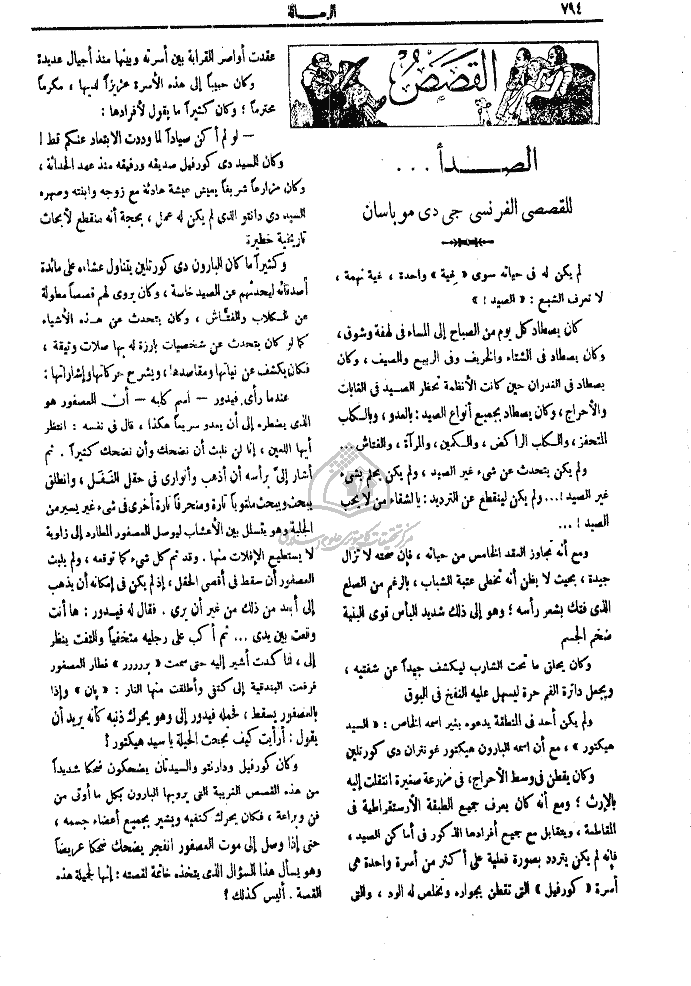 ٧٩٤
الرسالة
القصص
الصدأ . . .
للقصصي الفرنسي جي دي موباسان
لم يكن له في حياته سوى «غية» واحدة ، غية نهمة ،
لا تعرف الشبع : « الصيد ! »
كان يصطاد كل يوم من الصباح إلى المساء في لهفة وشوق ،
وكان يصطاد في الشتاء والخريف وفي الربيع والصيف ، وكان
يصطاد في الغدران حين كانت الأنظمة تحظر الصيد في الغابات
والأحراج ، وكان يصطاد بجميع أنواع الصيد : بالعدو ، وبالكلب
المتحفز ، وبالكلب الراكض ، وبالسكين ، وبالمرآة ، وبالفتاش ...
ولم يكن يتحدث عن شيء غير الصيد ، ولم يكن يحلم بشيء
غير الصيد !... ولم يكن لينقطع عن الترديد : يالشقاء من لا يحب
الصيد ! ...
ومع أنه تجاوز العقد الخامس من حياته ، فإن صحته لا تزال
جيدة ، بحيث لا يظن أنه تخطى عتبة الشباب ، بالرغم من الصلع
الذي فتك بشعر رأسه ؛ وهو إلى ذلك شديد البأس قوي البنية
ضخم الجسم
وكان يحلق ما تحت الشارب ليكشف جيداً عن شفتيه ،
ويجعل دائرة الفم حرة ليسهل عليه النفخ في البوق
ولم يكن أحد في المنطقة يدعوه بغير اسمه الخاص : « السيد
هيكتور » ، مع أن اسمه البارون هيكتور غونتران دي كورتلين
وكان يقطن في وسط الأحراج، في مزرعة صغيرة انتقلت إليه
بالإرث ؛ ومع أنه كان يعرف جميع الطبقة الأرستقراطية في
المقاطعة ، ويتقابل مع جميع أفرادها الذكور في أماكن الصيد ،
فإنه لم يكن يتردد بصورة فعلية على أكثر من أسرة واحدة هي
أسرة « كورفيل » التي تقطن بجواره وتخلص له الود ، والتي
عقدت أواصر للقرابة بين أسرته وبينها منذ أجيال عديدة
وكان حبيباً إلى هذه الأسرة عزيزاً لديها ، مكرماً
محترماً ؛ وكان كثيراً ما يقول لأفرادها :
— لو لم أكن صياداً لما وددت الابتعاد عنكم قط !
وكان للسيد دي كورفيل صديقه ورفيقه منذ عهد الحداثة ،
وكان مزارعاً شريفاً يعيش عيشة هادئة مع زوجه وابنته وصهره
السيد دي دانتو الذي لم يكن له عمل ، بحجة أنه منقطع لأبحاث
تاريخية خطيرة
وكثيراً ما كان البارون دي كورتلين يتناول عشاءه على مائدة
أصدقائه ليحدثهم عن الصيد خاصة ، وكان يروي لهم قصصاً مطولة
عن الكلاب والفتّاش ، وكان يتحدث عن هذه الأشياء
كما لو كان يتحدث عن شخصيات بارزة له بها صلات وثيقة ،
فكان يكشف عن نياتها ومقاصدها ، ويشرح حركاتها وإشاراتها :
عندما رأى فيدور — اسم كلبه — أن العصفور هو
الذي يضطره إلى أن يعدو سريعاً هكذا ، قال في نفسه : انتظر
أيها اللعين ، إنا لن نلبث أن نضحك وأن نضحك كثيراً . ثم
أشار إليّ برأسه أن أذهب وأتوارى في حقل النفل ، وانطلق
يبحث ويبحث ملتوياً تارة ومنحرفاً تارة أخرى في شيء غير يسير من
الجلبة وهو يتسلل بين الأعشاب ليوصل العصفور المطارد إلى زاوية
لا يستطيع الإفلات منها . وقد تم كل شيء كما توقعه ، ولم يلبث
العصفور أن سقط في أقصى الحقل ، إذ لم يكن في إمكانه أن يذهب
إلى أبعد من ذلك من غير أن يرى . فقال له فيدور : ها أنت
وقعت بين يدي ... ثم أكب على رجليه متخفياً والتفت ينظر
إلى ، فما كدت أشير إليه حتى سمعت « برررررر » فطار العصفور
فرفعت البندقية إلى كتفي وأطلقت منها النار : « پان » وإذا
بالعصفور يسقط ، فحمله فيدور إلى وهو يحرك ذنبه كأنه يريد أن
يقول : أرأيت كيف نجحت الحيلة يا سيد هيكتور ؟
وكان كورفيل ودارنتو والسيدتان يضحكون ضحكا شديداً
من هذه القصص الغريبة التي يرويها البارون بكل ما أوتى من
فن وبراعة ، فكان يحرك كتفيه ويشير بجميع أعضاء جسمه ،
حتى إذا وصل إلى موت العصفور انفجر يضحك ضحكا عريضاً
وهو يسأل هذا السؤال الذي يتخذه خاتمة لقصته : إنها لجميلة هذه
القصة . أليس كذلك ؟